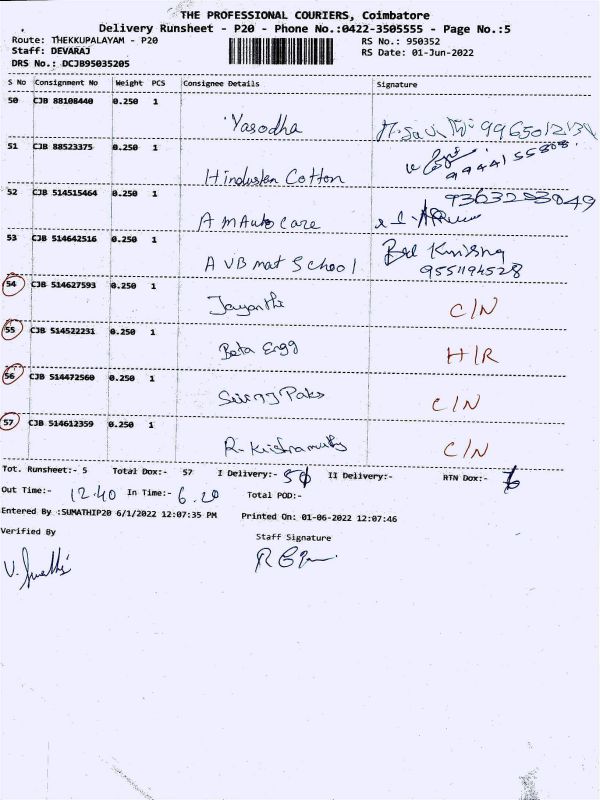 THE PROFESSIONAL COURIERS, Coimbatore
Delivery Runsheet - P20 - Phone No.:0422-3505555 - Page No.:5
Route: THEKKUPALAYAM - P20 RS No.: 950352
Staff: DEVARAJ RS Date: 01-Jun-2022
DRS No.: DCJB95035205
S No Consignment No Weight PCS Consignee Details Signature
50 CJB 88108440 0.250 1 Yasodha
51 CJB 88523375 0.250 1 Hindustan Cotton
52 CJB 514515464 0.250 1 A M Auto care
53 CJB 514642516 0.250 1 A V B mat School 9551194528
54 CJB 514627593 0.250 1 Jayanthi C/N
55 CJB 514522231 0.250 1 Beta Engg H/R
56 CJB 514472560 0.250 1 C/N
57 CJB 514612359 0.250 1 C/N
Tot. Runsheet:- 5 Total Dox:- 57 I Delivery:- II Delivery:- RTN Dox:-
Out Time:- 12.40 In Time:- 6.20 Total POD:-
Entered By :SUMATHIP20 6/1/2022 12:07:35 PM Printed On: 01-06-2022 12:07:46
Verified By Staff Signature